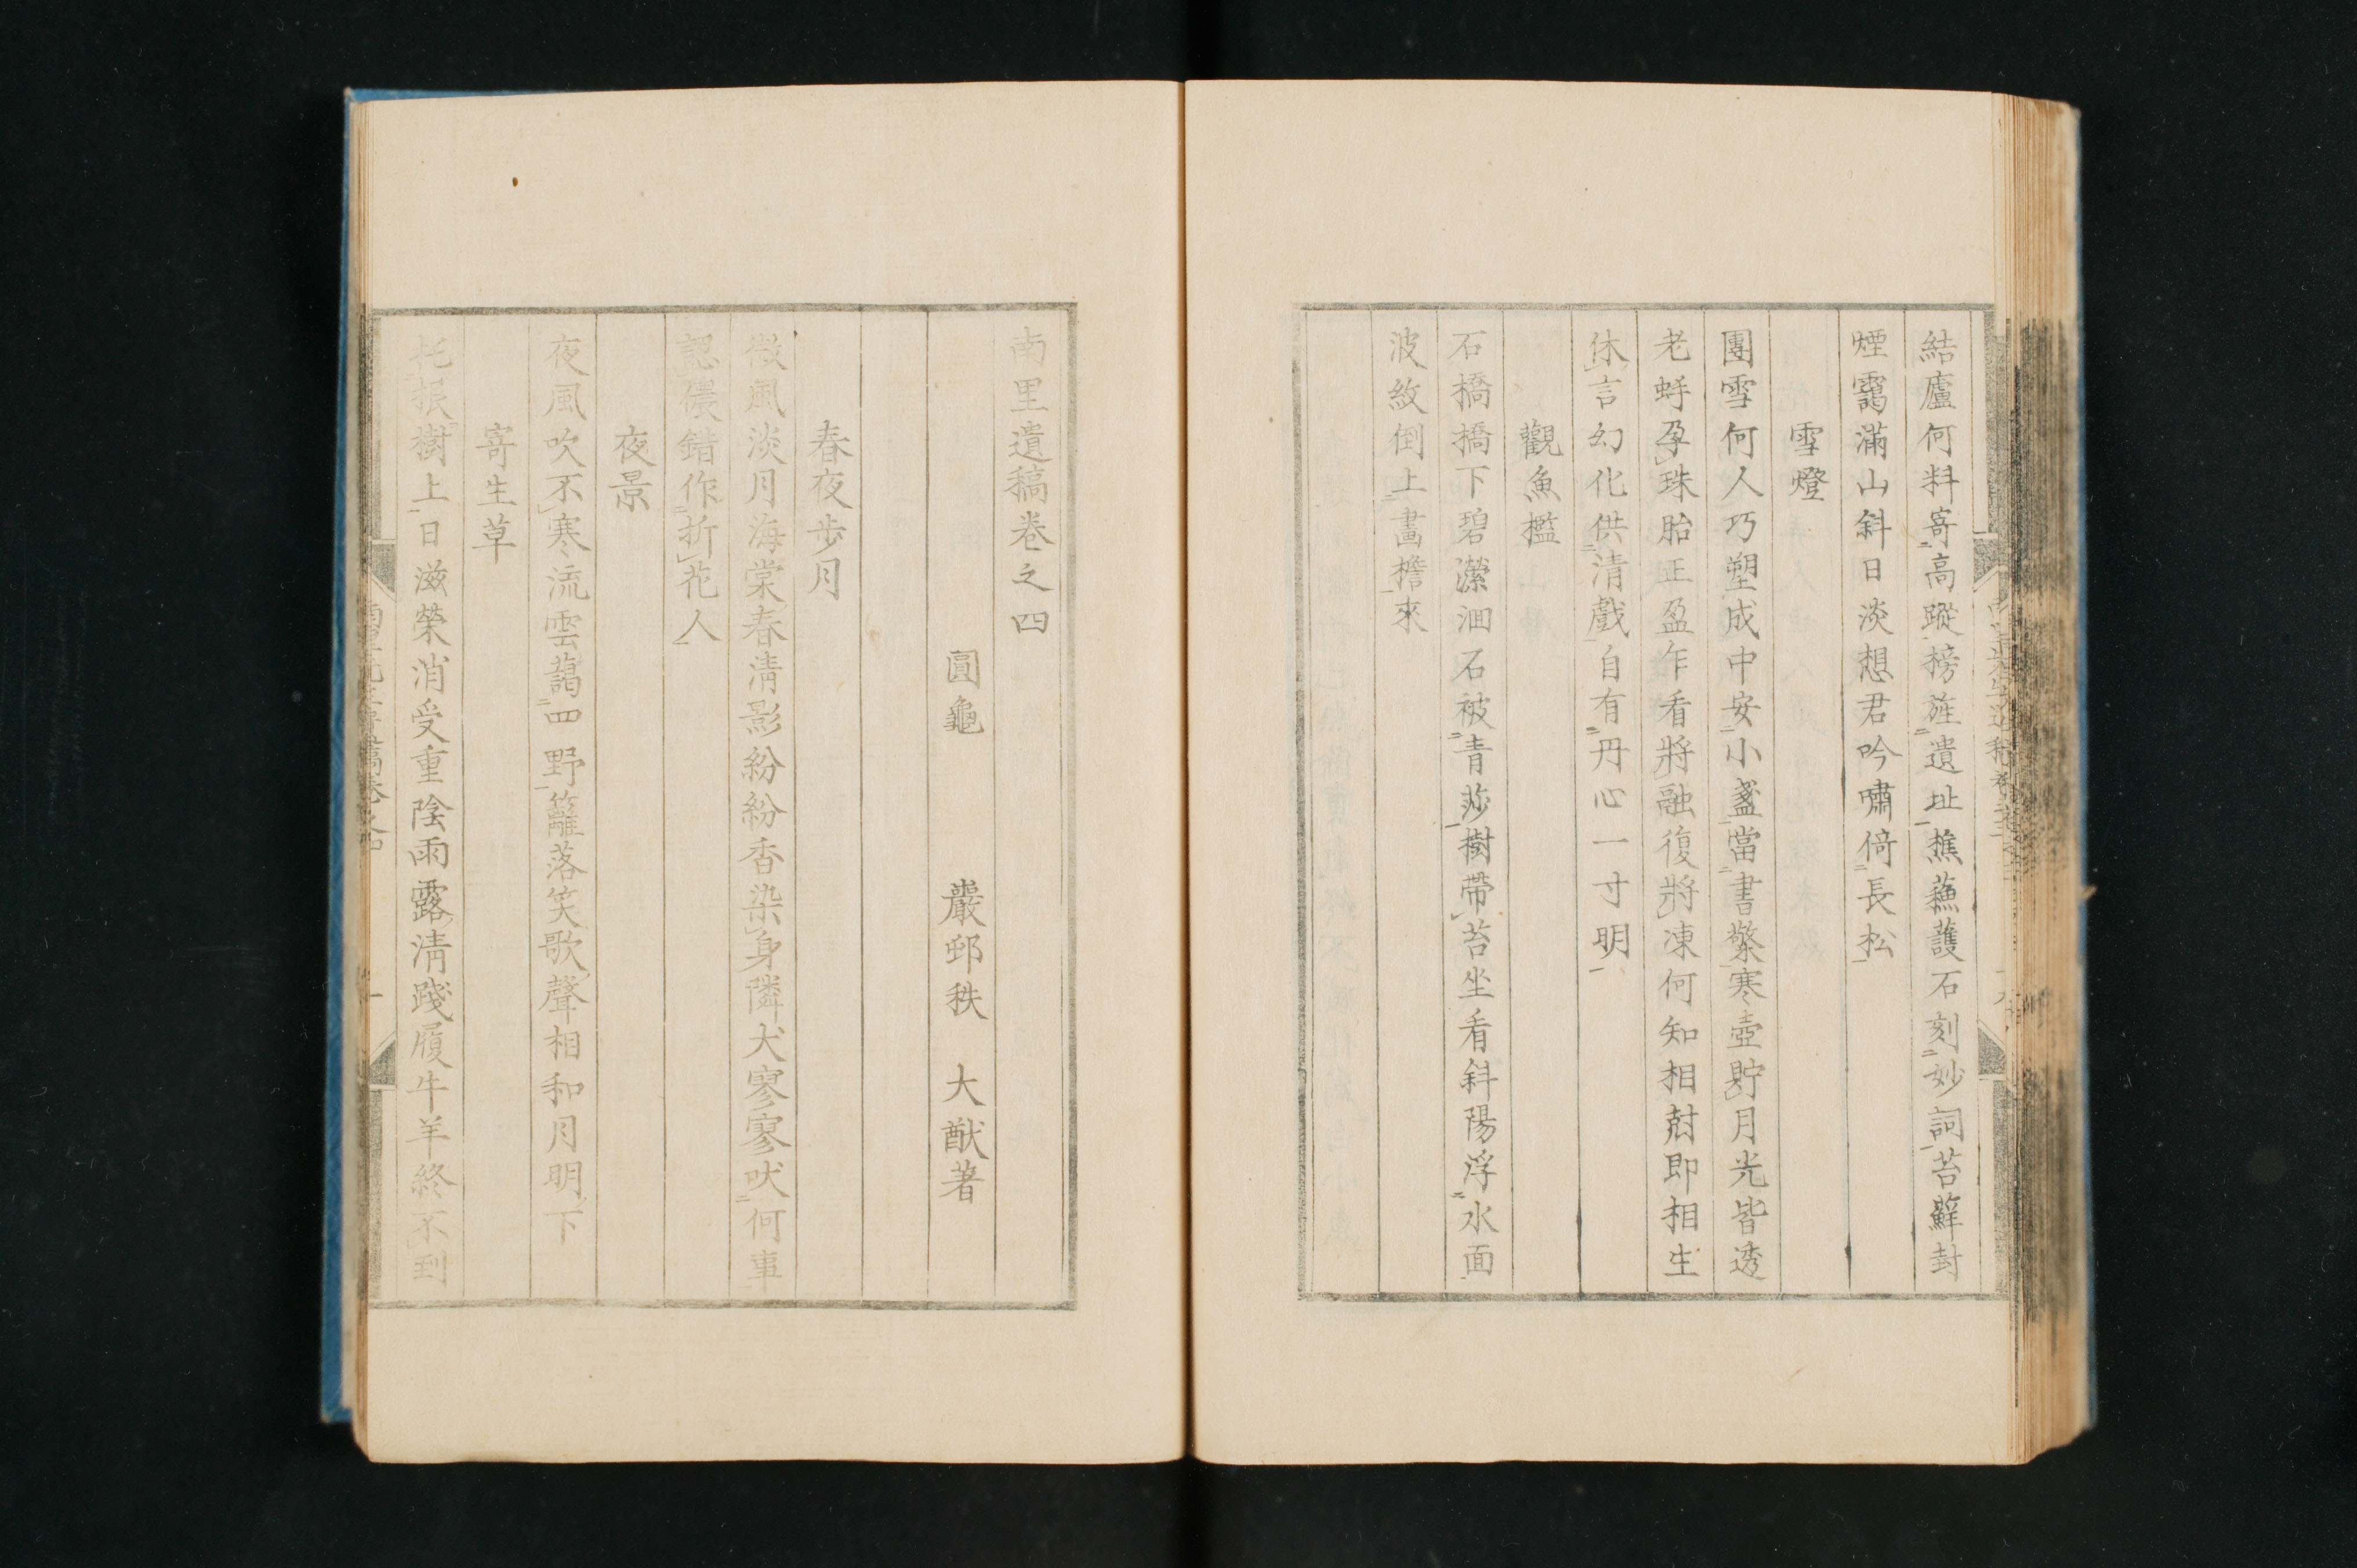 結廬何料寄高蹤榜旌遺址樵蘓護石刻妙詞苔蘚封
煙靄滿山斜日淡想君吟嘯倚長松
雪燈
團雪何人巧塑成中安小盞當書檠寒壺貯月光皆透
老蚌孕珠胎正盈乍看將融復將凍何知相尅即相生
休言幻化供清戲自有丹心一寸明
觀魚檻
石橋橋下碧瀠洄石被青莎樹帶苔坐看斜陽浮水面
波紋倒上畵檐來
南里遺稿卷之四
圓龜 巖邨秩 大猷著
春夜步月
微風淡月海棠春清影紛紛香染身隣犬寥寥吠何事
認儂錯作折花人
夜景
夜風吹不寒流雲藹四野籬落笑歌聲相和月明下
寄生草
托根樹上日滋榮消受重陰雨露清踐履牛羊終不到